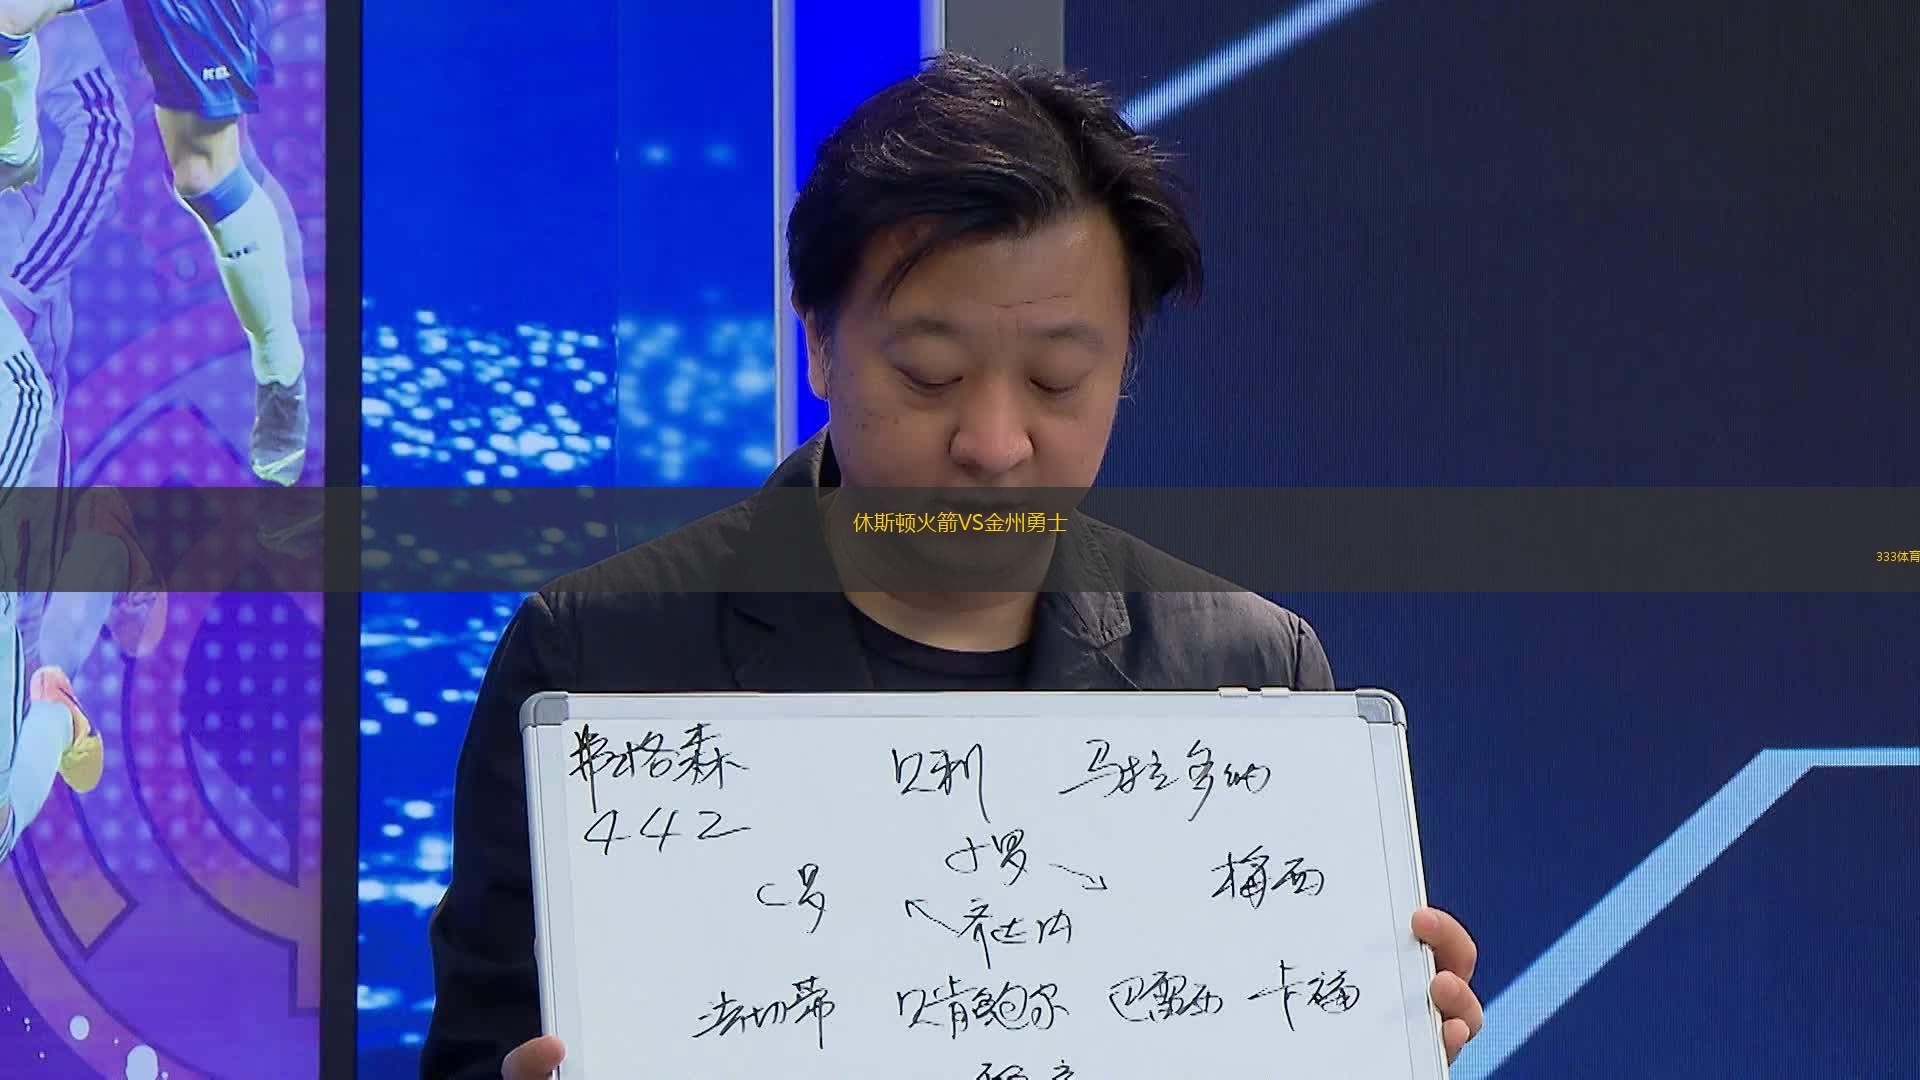 休斯顿火箭VS金州勇士
333体育
弗格森 贝利 马拉多纳
442
小罗
C罗 梅西
齐达内
法切蒂 贝肯鲍尔 巴雷西 卡福